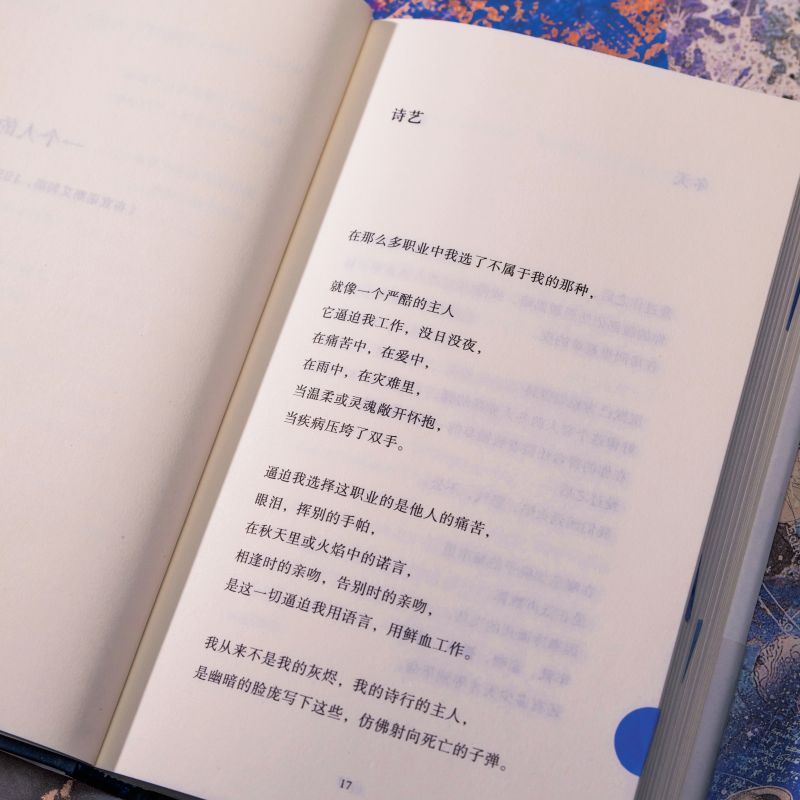 诗艺
在那么多职业中我选了不属于我的那种，
就像一个严酷的主人
它逼迫我工作，没日没夜，
在痛苦中，在爱中，
在雨中，在灾难里，
当温柔或灵魂敞开怀抱，
当疾病压垮了双手。
逼迫我选择这职业的是他人的痛苦，
眼泪，挥别的手帕，
在秋天里或火焰中的诺言，
相逢时的亲吻，告别时的亲吻，
是这一切逼迫我用语言，用鲜血工作。
我从来不是我的灰烬，我的诗行的主人，
是幽暗的脸庞写下这些，仿佛射向死亡的子弹。
17